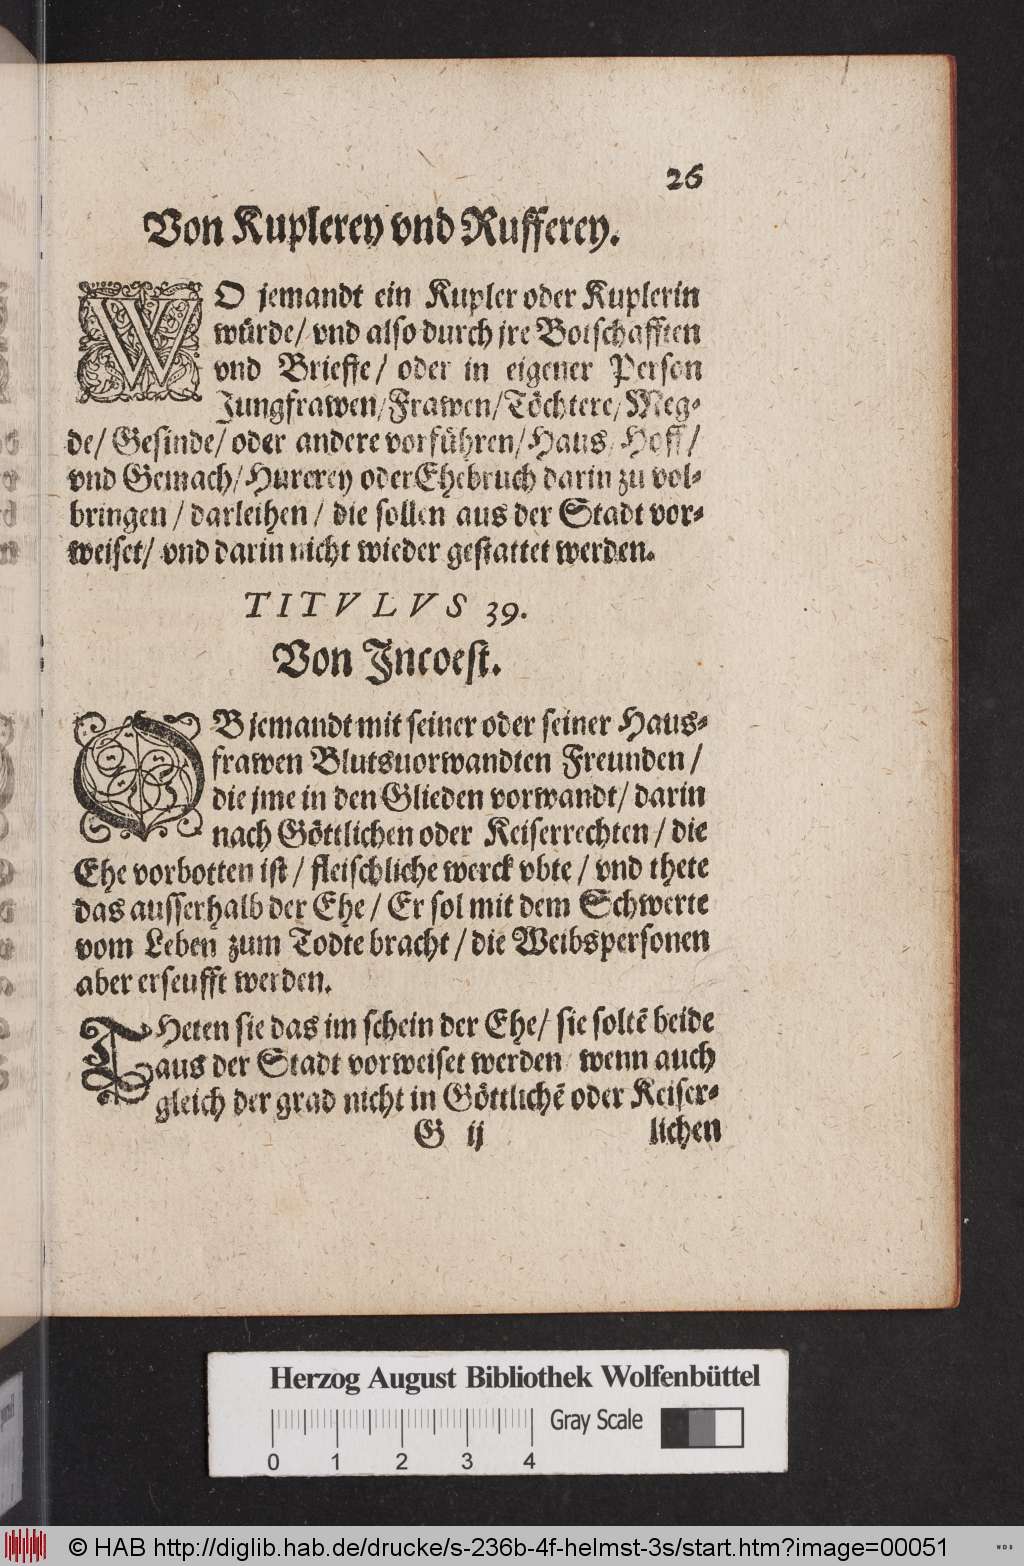 26
Von Kuplerey vnd Rufferey.
WO jemandt ein Kupler oder Kuplerin
würde/ vnd also durch jre Botschafften
vnd Brieffe/ oder in eigener Person
Jungfrawen/ Frawen/ Töchtere/ Meg-
de/ Gesinde/ oder andere vorführen/ Haus/ Hoff/
vnd Gemach/ Hurerey oder Ehebruch darin zu vol-
bringen/ darleihen/ die sollen aus der Stadt vor-
weiset/ vnd darin nicht wieder gestattet werden.
TITVLVS 39.
Von Incoest.
OB jemandt mit seiner oder seiner Haus-
frawen Blutsuorwandten Freunden/
die jme in den Glieden vorwandt/ darin
nach Göttlichen oder Keiserrechten/ die
Ehe vorbotten ist/ fleischliche werck vbte/ vnd thete
das ausserhalb der Ehe/ Er sol mit dem Schwerte
vom Leben zum Todte bracht/ die Weibspersonen
aber erseufft werden.
THeten sie das im schein der Ehe/ sie soltẽ beide
aus der Stadt vorweiset werden/ wenn auch
gleich der grad nicht in Göttlichẽ oder Keiser-
G ij lichen
Herzog August Bibliothek Wolfenbüttel
Gray Scale
0 1 2 3 4
© HAB http://diglib.hab.de/drucke/s-236b-4f-helmst-3s/start.htm?image=00051
WDB